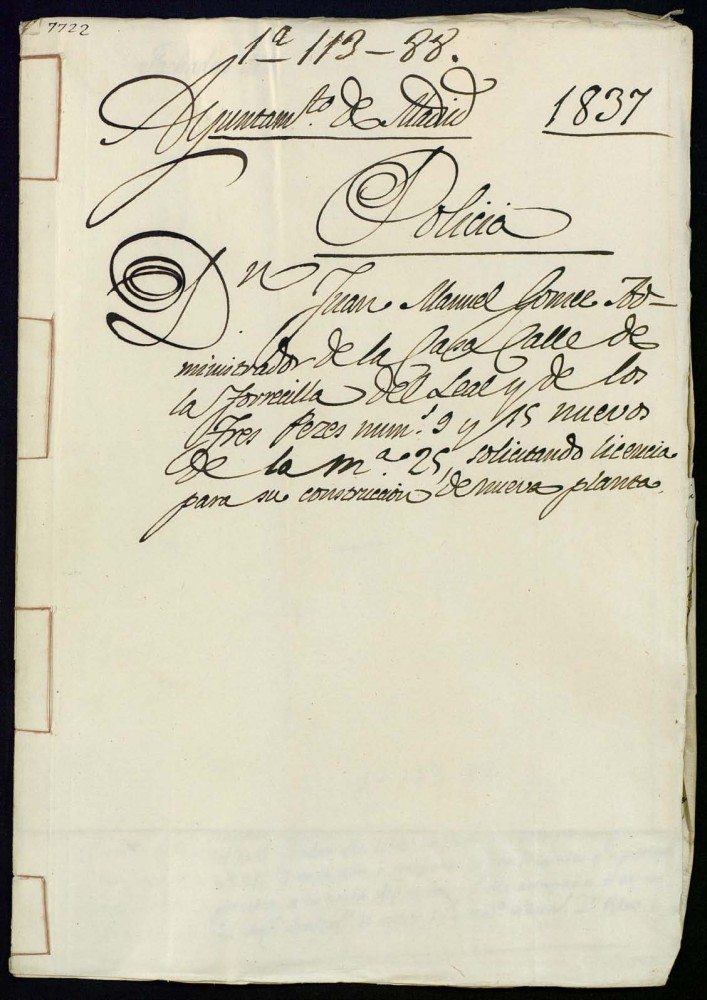 7722
1ª 113-88.
Ayuntamto. de Madrid 1837
Policia
Dn. Juan Manuel Gomez Ad-
ministrador de la Casa Calle de
la Torrecilla del Leal y de los
Tres Pezes num.s 9 y 15 nuevos
de la m.a 25, solicitando licencia
para su construccion de nueva planta.